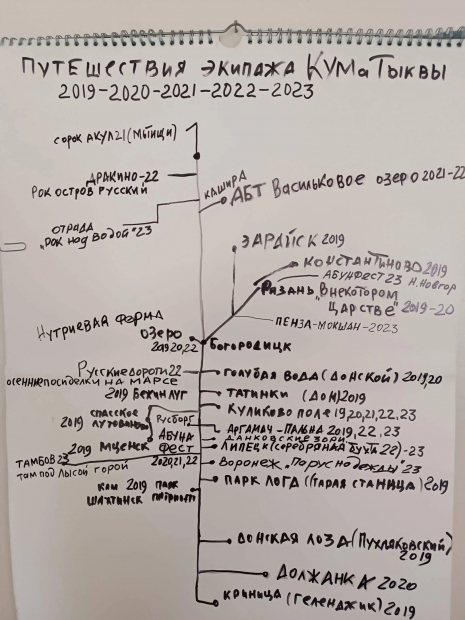 ПУТЕШЕСТВИЯ ЭКИПАЖА КУМаТЫКВЫ
2019-2020-2021-2022-2023
СОРОК АКУЛ 21 (МЫТИЩИ)
ДРАКИНО-22
РОК ОСТРОВ РУССКИЙ
КАШИРА
АБТ ВАСИЛЬКОВОЕ ОЗЕРО 2021-22
ОТРАДА
"РОК НАД ВОДОЙ" 23
ЗАРАЙСК 2019
КОНСТАНТИНОВО 2019
АБУНФЕСТ 23 Н.НОВГОР
РЯЗАНЬ "В НЕКОТОРОМ
ЦАРСТВЕ" 2019-20
ПЕНЗА-МОКШАН-2023
НУТРИЕВАЯ ФЕРМА
ОЗЕРО
2019,20,22
БОГОРОДИЦК
РУССКИЕ ДОРОГИ 22
ОСЕННИЕ ПОСИДЕЛКИ НА МАРСЕ
ГОЛУБАЯ ВОДА (ДОНСКОЙ) 2019,20
2019 БЕЖИН ЛУГ
ТАТИНКИ (ДОН) 2019
СПАССКОЕ
2019 ЛУТОВИНОВО
РУСБОРГ
КУЛИКОВО ПОЛЕ 19,20,21,22,23
АРГАМАЧ-ПАЛЬНА 2019,22,23
2019 МЦЕНСК
АБУНА
ФЕСТ
2020,21,22
ДАНКОВСКИЕ ЗОРИ
ЛИПЕЦК (СЕРЕБРЯНАЯ БУХТА 22)-23
ТАМБОВ 23
ТАМ ПОД ЛЫСОЙ ГОРОЙ
ВОРОНЕЖ "ПАРУС НАДЕЖДЫ" 23
КАМ 2019 ПАРК
ШАХТИНСК ПАТРИОТ
ПАРК ЛОГА (СТАРАЯ СТАНИЦА) 2019
ДОНСКАЯ ЛОЗА (ПУХЛЯКОВСКИЙ)
2019
ДОЛЖАНКА 2020
КРИНИЦА (ГЕЛЕНДЖИК) 2019